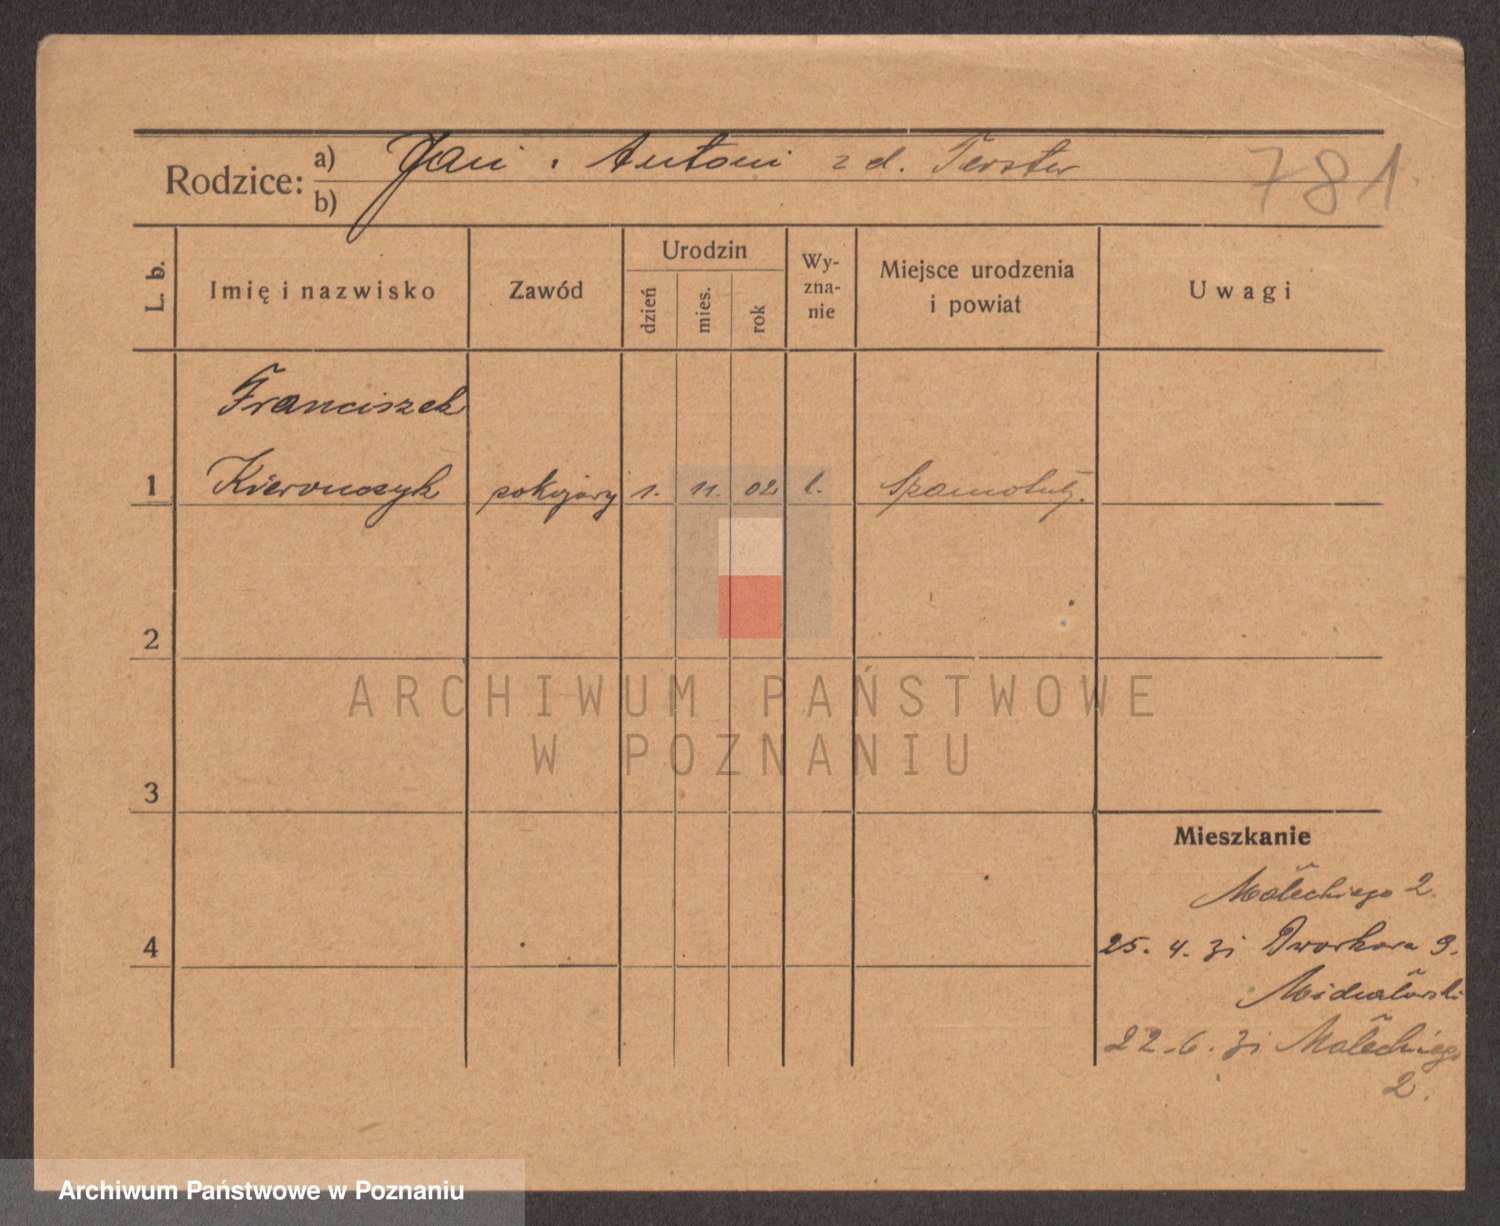 Rodzice: a) Jan i Antoni z d. Ferster
b)
781
L. b.
Imię i nazwisko
Zawód
Urodzin
dzień
mies.
rok
Wy-
zna-
nie
Miejsce urodzenia
i powiat
Uwagi
Franciszek
1 pokojowy 1. 11. 02 Szamotuły.
2
3
4
Mieszkanie
Małeckiego 2.
25. 4. 31 Dworkowa 9.
22. 6. 31 Małeckiego
2.
ARCHIWUM PAŃSTWOWE
W POZNANIU
Archiwum Państwowe w Poznaniu